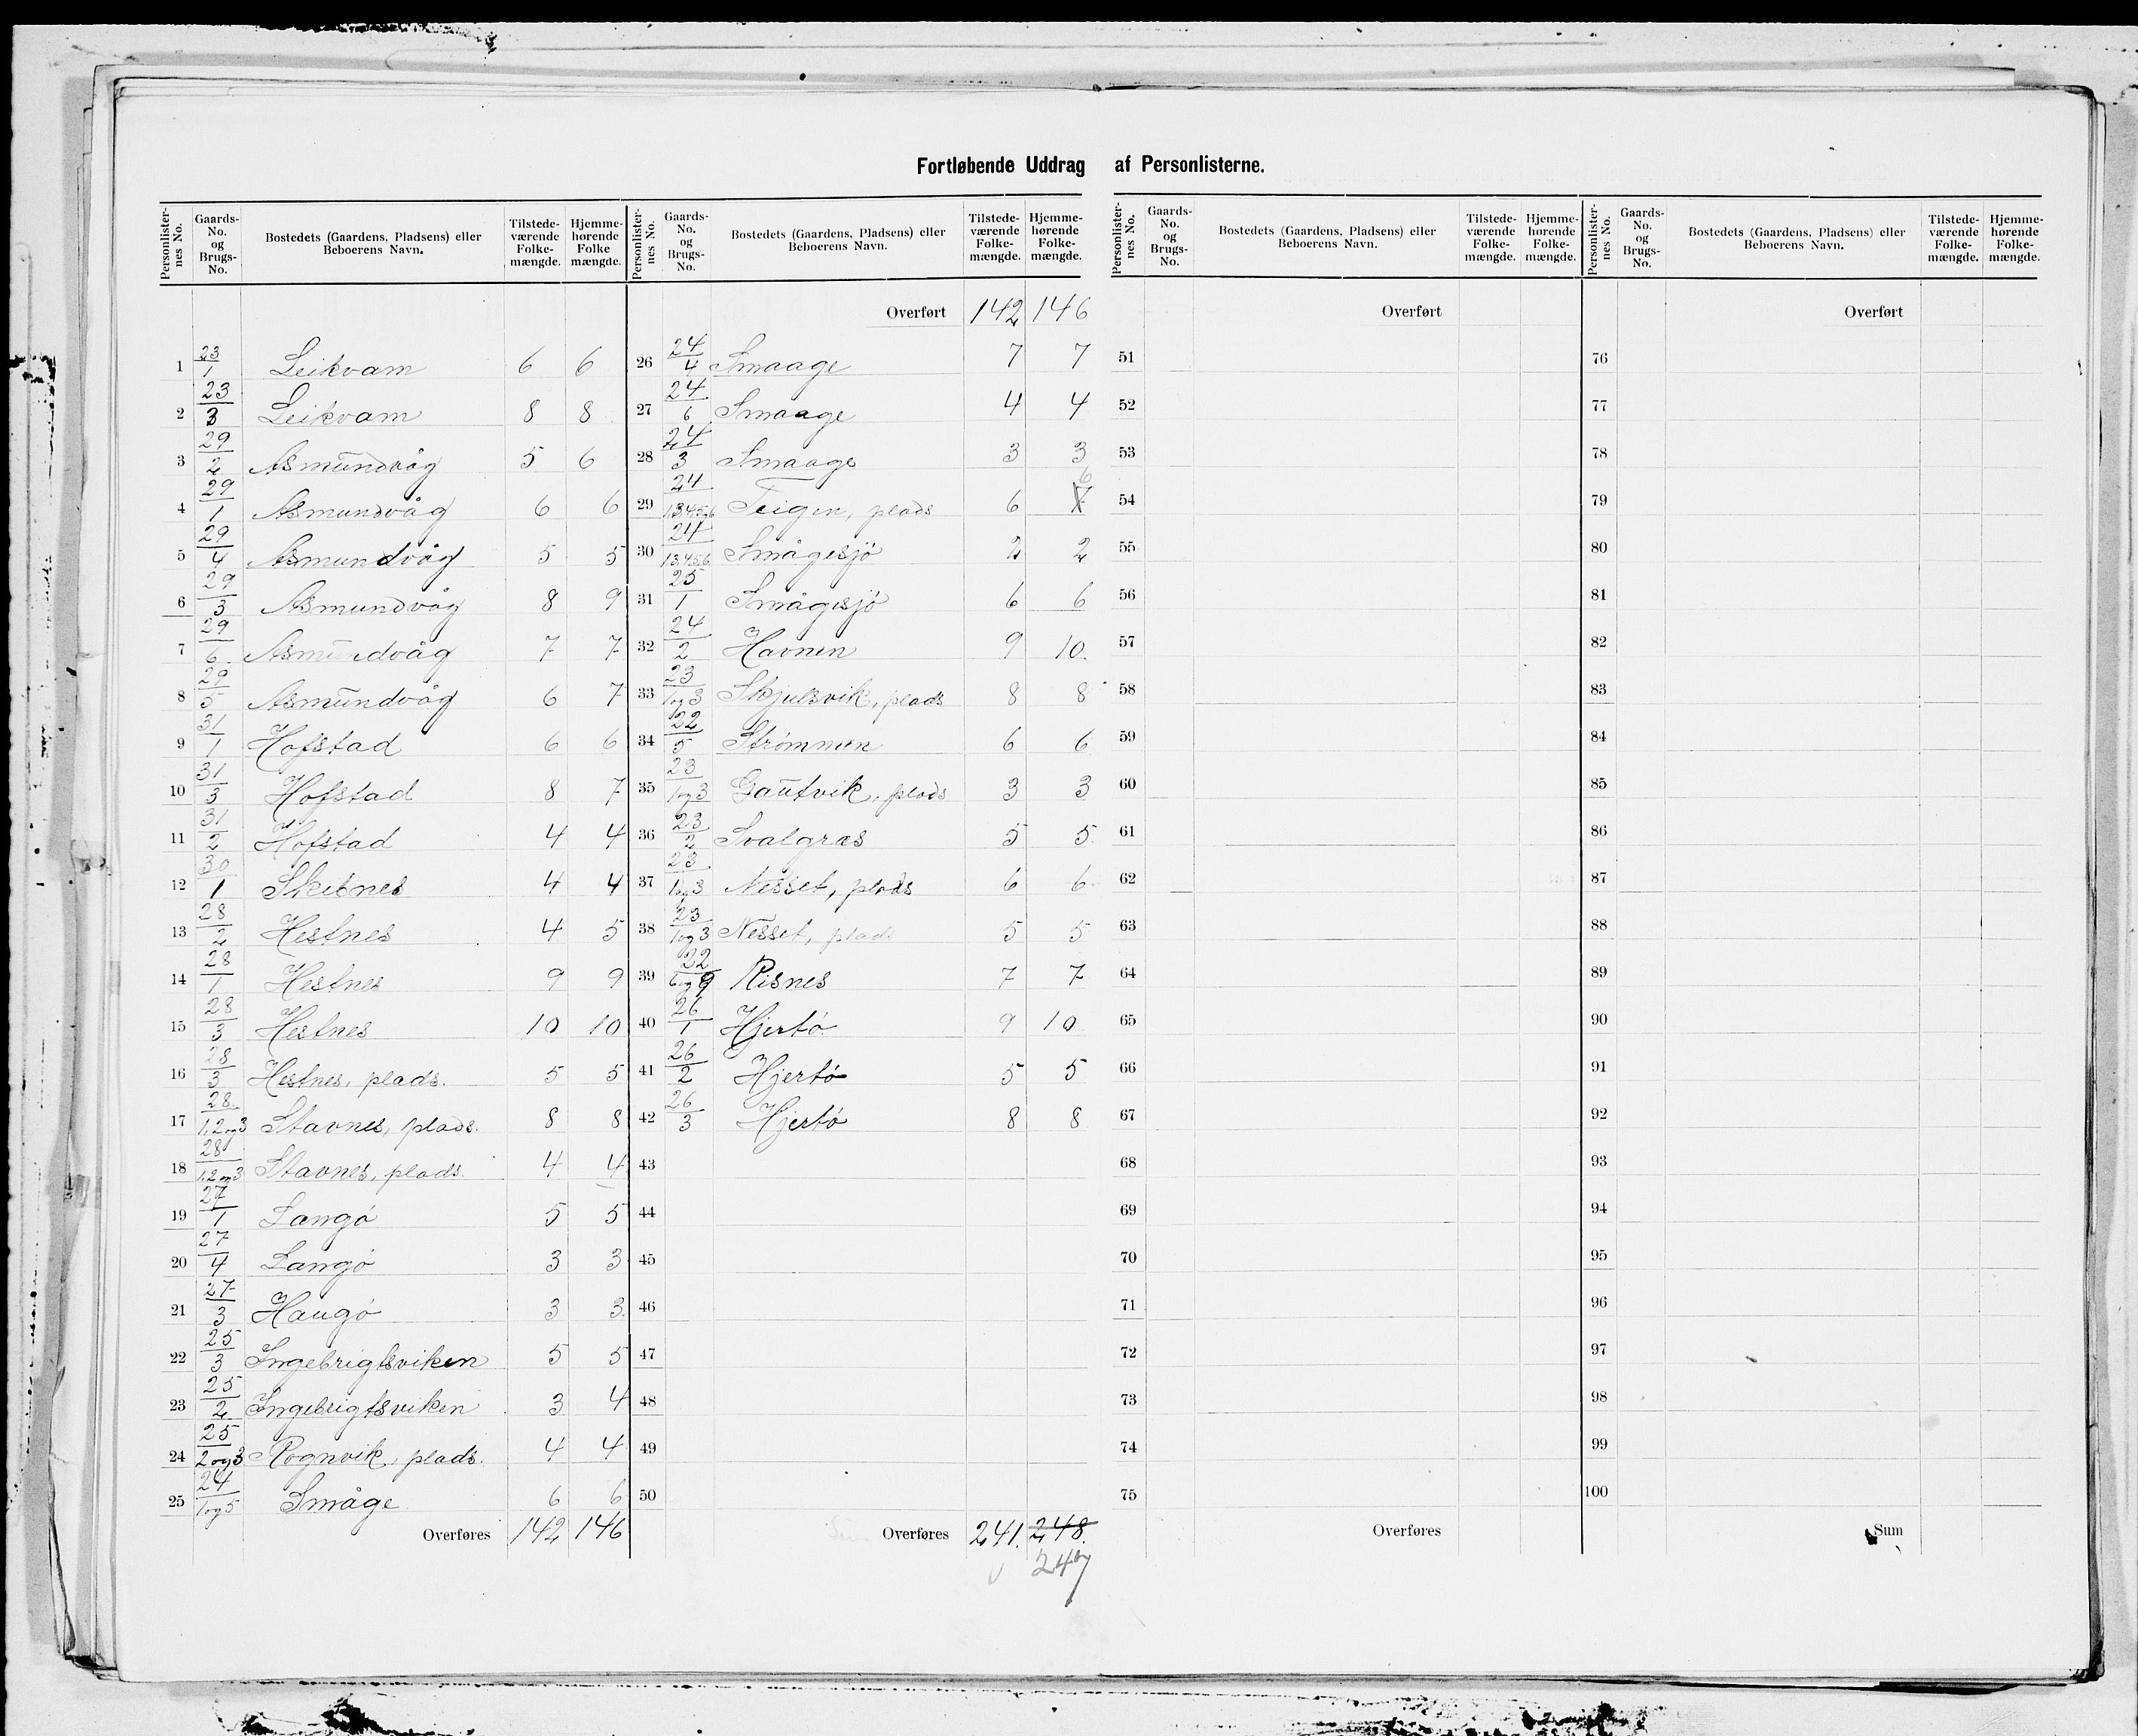 Fortløbende Uddrag af Personlisterne.
Personlisternes No. Gaards-No. og Brugs-No. Bostedets (Gaardens, Pladsens) eller Beboerens Navn. Tilstedeværende Folkemængde. Hjemmehørende Folkemængde.
1 23/1 Leikvam 6 6
2 23/3 Leikvam 8 8
3 29/2 Asmundvåg 5 6
4 29/1 Asmundvåg 6 6
5 29/4 Asmundvåg 5 5
6 29/3 Asmundvåg 8 9
7 29/6 Asmundvåg 7 7
8 29/5 Asmundvåg 6 7
9 31/1 Hofstad 6 6
10 31/3 Hofstad 8 7
11 31/2 Hofstad 4 4
12 30/1 Skibnes 4 4
13 28/2 Hestnes 4 5
14 28/1 Hestnes 9 9
15 28/3 Hestnes 10 10
16 28/3 Hestnes, plads. 5 5
17 28/1,2og3 Stavnes, plads. 8 8
18 28/1,2og3 Stavnes, plads. 4 4
19 27/1 Langö 5 5
20 27/4 Langö 3 3
21 27/3 Haugö 3 3
22 25/3 Ingebrigtsviken 5 5
23 25/2 Ingebrigtsviken 3 4
24 25/2og3 Rognvik, plads. 4 4
25 24/1og5 Småge 6 6
Overføres 142 146
Personlisternes No. Gaards-No. og Brugs-No. Bostedets (Gaardens, Pladsens) eller Beboerens Navn. Tilstedeværende Folkemængde. Hjemmehørende Folkemængde.
Overført 142 146
26 24/4 Smaage 7 7
27 24/6 Smaage 4 4
28 24/3 Smaage 3 3
29 24/1,3,4,5,6 Teigen, plads 6 7 6
30 24/1,3,4,5,6 Smågesjö 2 2
31 25/1 Smågesjö 6 6
32 24/2 Havnen 9 10
33 23/1og3 Skjulsvik, plads 8 8
34 22/5 Strømmen 6 6
35 23/1og3 Gautvik, plads 3 3
36 23/2 Svalgræs 5 5
37 23/1og3 Nesset, plads 6 6
38 23/1og3 Nesset, plads 5 5
39 22/6og9 Risnes 7 7
40 26/1 Hjertö 9 10
41 26/2 Hjertö 5 5
42 26/3 Hjertö 8 8
43
44
45
46
47
48
49
50
Sum Overføres 241. 248.
247
Personlisternes No. Gaards-No. og Brugs-No. Bostedets (Gaardens, Pladsens) eller Beboerens Navn. Tilstedeværende Folkemængde. Hjemmehørende Folkemængde.
Overført
51
52
53
54
55
56
57
58
59
60
61
62
63
64
65
66
67
68
69
70
71
72
73
74
75
Overføres
Personlisternes No. Gaards-No. og Brugs-No. Bostedets (Gaardens, Pladsens) eller Beboerens Navn. Tilstedeværende Folkemængde. Hjemmehørende Folkemængde.
Overført
76
77
78
79
80
81
82
83
84
85
86
87
88
89
90
91
92
93
94
95
96
97
98
99
100
Sum